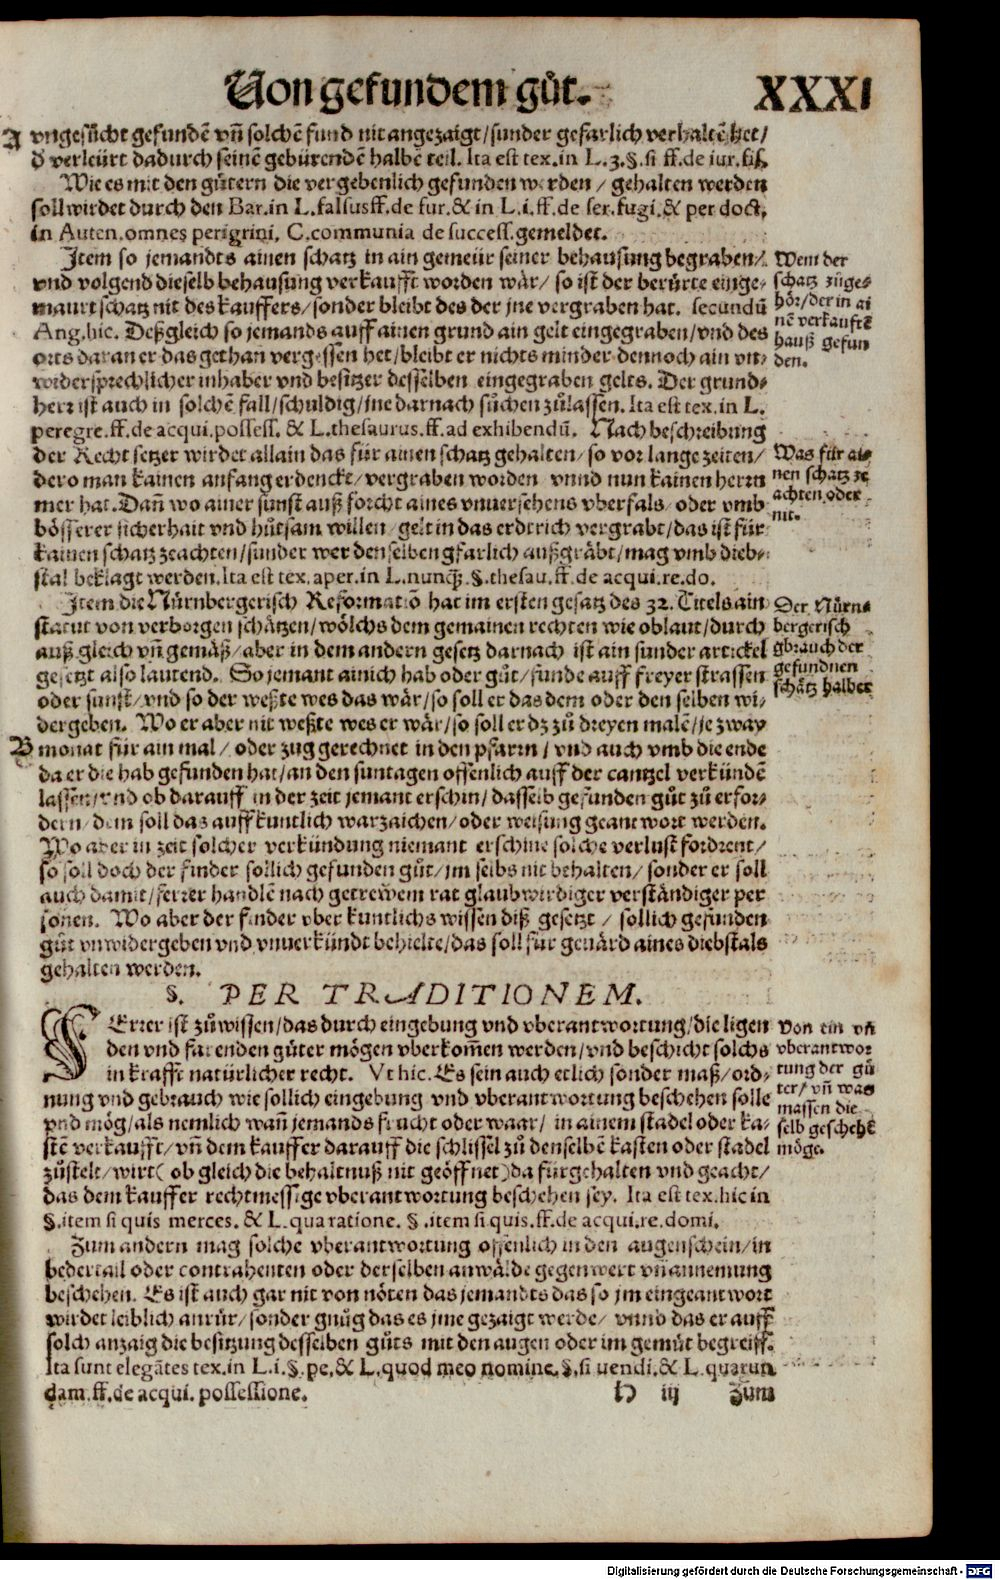 Von gefundem gůt. XXXI
A vngesůcht gefundē vñ solchē fund nit angezaigt/sunder gefarlich verhaltē het/
d̄ verleürt dadurch seinē gebürendē halbē teil. Ita est tex.in L.3.§.si ff.de iur.fis.
Wie es mit den gůtern die vergebenlich gefunden werden / gehalten werden
soll wirdet durch den Bar.in L.falsus ff.de fur.& in L.i.ff.de ser.fugi.& per doct.
in Auten.omnes perigrini, C.communia de success.gemeldet.
Item so jemandts ainen schatz in ain gemeür seiner behausung begraben/
vnd volgend dieselb behausung verkaufft worden wär/ so ist der berürte einge-
maurt schatz nit des kauffers/sonder bleibt des der jne vergraben hat. secundū
Ang.hic. Deßgleich so jemands auff ainen grund ain gelt eingegraben/vnd des
orts daran er das gethan vergessen het/bleibt er nichts minder dennoch ain vn-
widersprechlicher inhaber vnd besitzer desselben eingegraben gelts. Der grund-
herr ist auch in solchē fall/schuldig/jne darnach sůchen zůlassen. Ita est tex.in L.
peregre.ff.de acqui.possess. & L.thesaurus.ff.ad exhibendū. Nach beschreibung
der Recht setzer wirdet allain das für ainen schatz gehalten/so vor lange zeiten/
dero man kainen anfang erdencke/vergraben worden vnnd nun kainen herrn
mer hat. Dañ wo ainer sunst auß forcht aines vnuersehens vberfals/oder vmb
bösserer sicherhait vnd hůtsam willen/gelt in das erdtrich vergrabt/das ist für
kainen schatz zeachten/sunder wer den selben gfarlich außgräbt/mag vmb dieb-
stal beklagt werden.Ita est tex.aper.in L.nunq̃.§.thesau.ff.de acqui.re.do.
Item die Nürnbergerisch Reformatiō hat im ersten gesatz des 32.Titels ain
statut von verborgen schätzen/wölchs dem gemainen rechten wie oblaut/durch
auß gleich vñ gemäß/aber in dem andern gesetz darnach ist ain sunder artickel
gesetzt also lautend. So jemant ainich hab oder gůt/funde auff freyer strassen
oder sunst/vnd so der weßte wes das wär/so soll er das dem oder den selben wi-
dergeben. Wo er aber nit weßte wes er wär/so soll er dz zů dreyen malē/je zway
B monat für ain mal/ oder zug gerechnet in den pfarrn/ vnd auch vmb die ende
da er die hab gefunden hat/an den suntagen offenlich auff der cantzel verkündē
lassen/vnd ob darauff in der zeit jemant erschin/dasselb gefunden gůt zů erfor-
dern/dem soll das auff kuntlich warzaichen/oder weisung geantwort werden.
Wo aber in zeit solcher verkündung niemant erschine solche verlust fordrent/
so soll doch der finder sollich gefunden gůt/jm selbs nit behalten/sonder er soll
auch damit/ferrer handlē nach getrewem rat glaubwirdiger verständiger per
sonen. Wo aber der finder vber kuntlichs wissen diß gesetzt / sollich gefunden
gůt vnwidergeben vnd vnuerkündt behielte/das soll für geuärd aines diebstals
gehalten werden.
§. PER TRADITIONEM.
FErrer ist zůwissen/das durch eingebung vnd vberantwortung/die ligen
den vnd farenden gůter mögen vberkom̄en werden/vnd beschicht solchs
in krafft natürlicher recht. Vt hic. Es sein auch etlich sonder maß/ord-
nung vnd gebrauch wie sollich eingebung vnd vberantwortung beschehen solle
vnd mög/als nemlich wañ jemands frucht oder waar/ in ainem stadel oder ka-
stē verkaufft/vñ dem kauffer darauff die schlissel zů denselbē kasten oder stadel
zůstelt/wirt(ob gleich die behaltnuß nit geöffnet)da fürgehalten vnd geacht/
das dem kauffer rechtmessige vberantwortung beschehen sey. Ita est tex.hic in
§.item si quis merces. & L.qua ratione. §.item si quis.ff.de acqui.re.domi.
Zum andern mag solche vberantwortung offenlich in den augenschein/in
beder tail oder contrahenten oder derselben anwälde gegenwert vñ annemung
beschehen. Es ist auch gar nit von nöten das jemandts das so jm eingeantwort
wirdet leiblich anrür/sonder gnůg das es jme gezaigt werde/ vnnd das er auff
solch anzaig die besitzung desselben gůts mit den augen oder im gemůt begreiff.
Ita sunt elegātes tex.in L.i.§.pe.& L.quod meo nomine.§.si uendi.& L.quarun
dam.ff.de acqui.possessione.
H iij Zum
Wem der
schatz zůge-
hör/der in ai
nē verkauftē
hauß gefun
den.
Was für ai-
nen schatz ze
achten oder
nit.
Der Nürn-
bergerisch
gbrauch der
gefundnen
schätz halber
Von ein vñ
vberantwor
tung der gů
ter/ vñ was
massen die-
selb geschehē
möge.
Digitalisierung gefördert durch die Deutsche Forschungsgemeinschaft - DFG